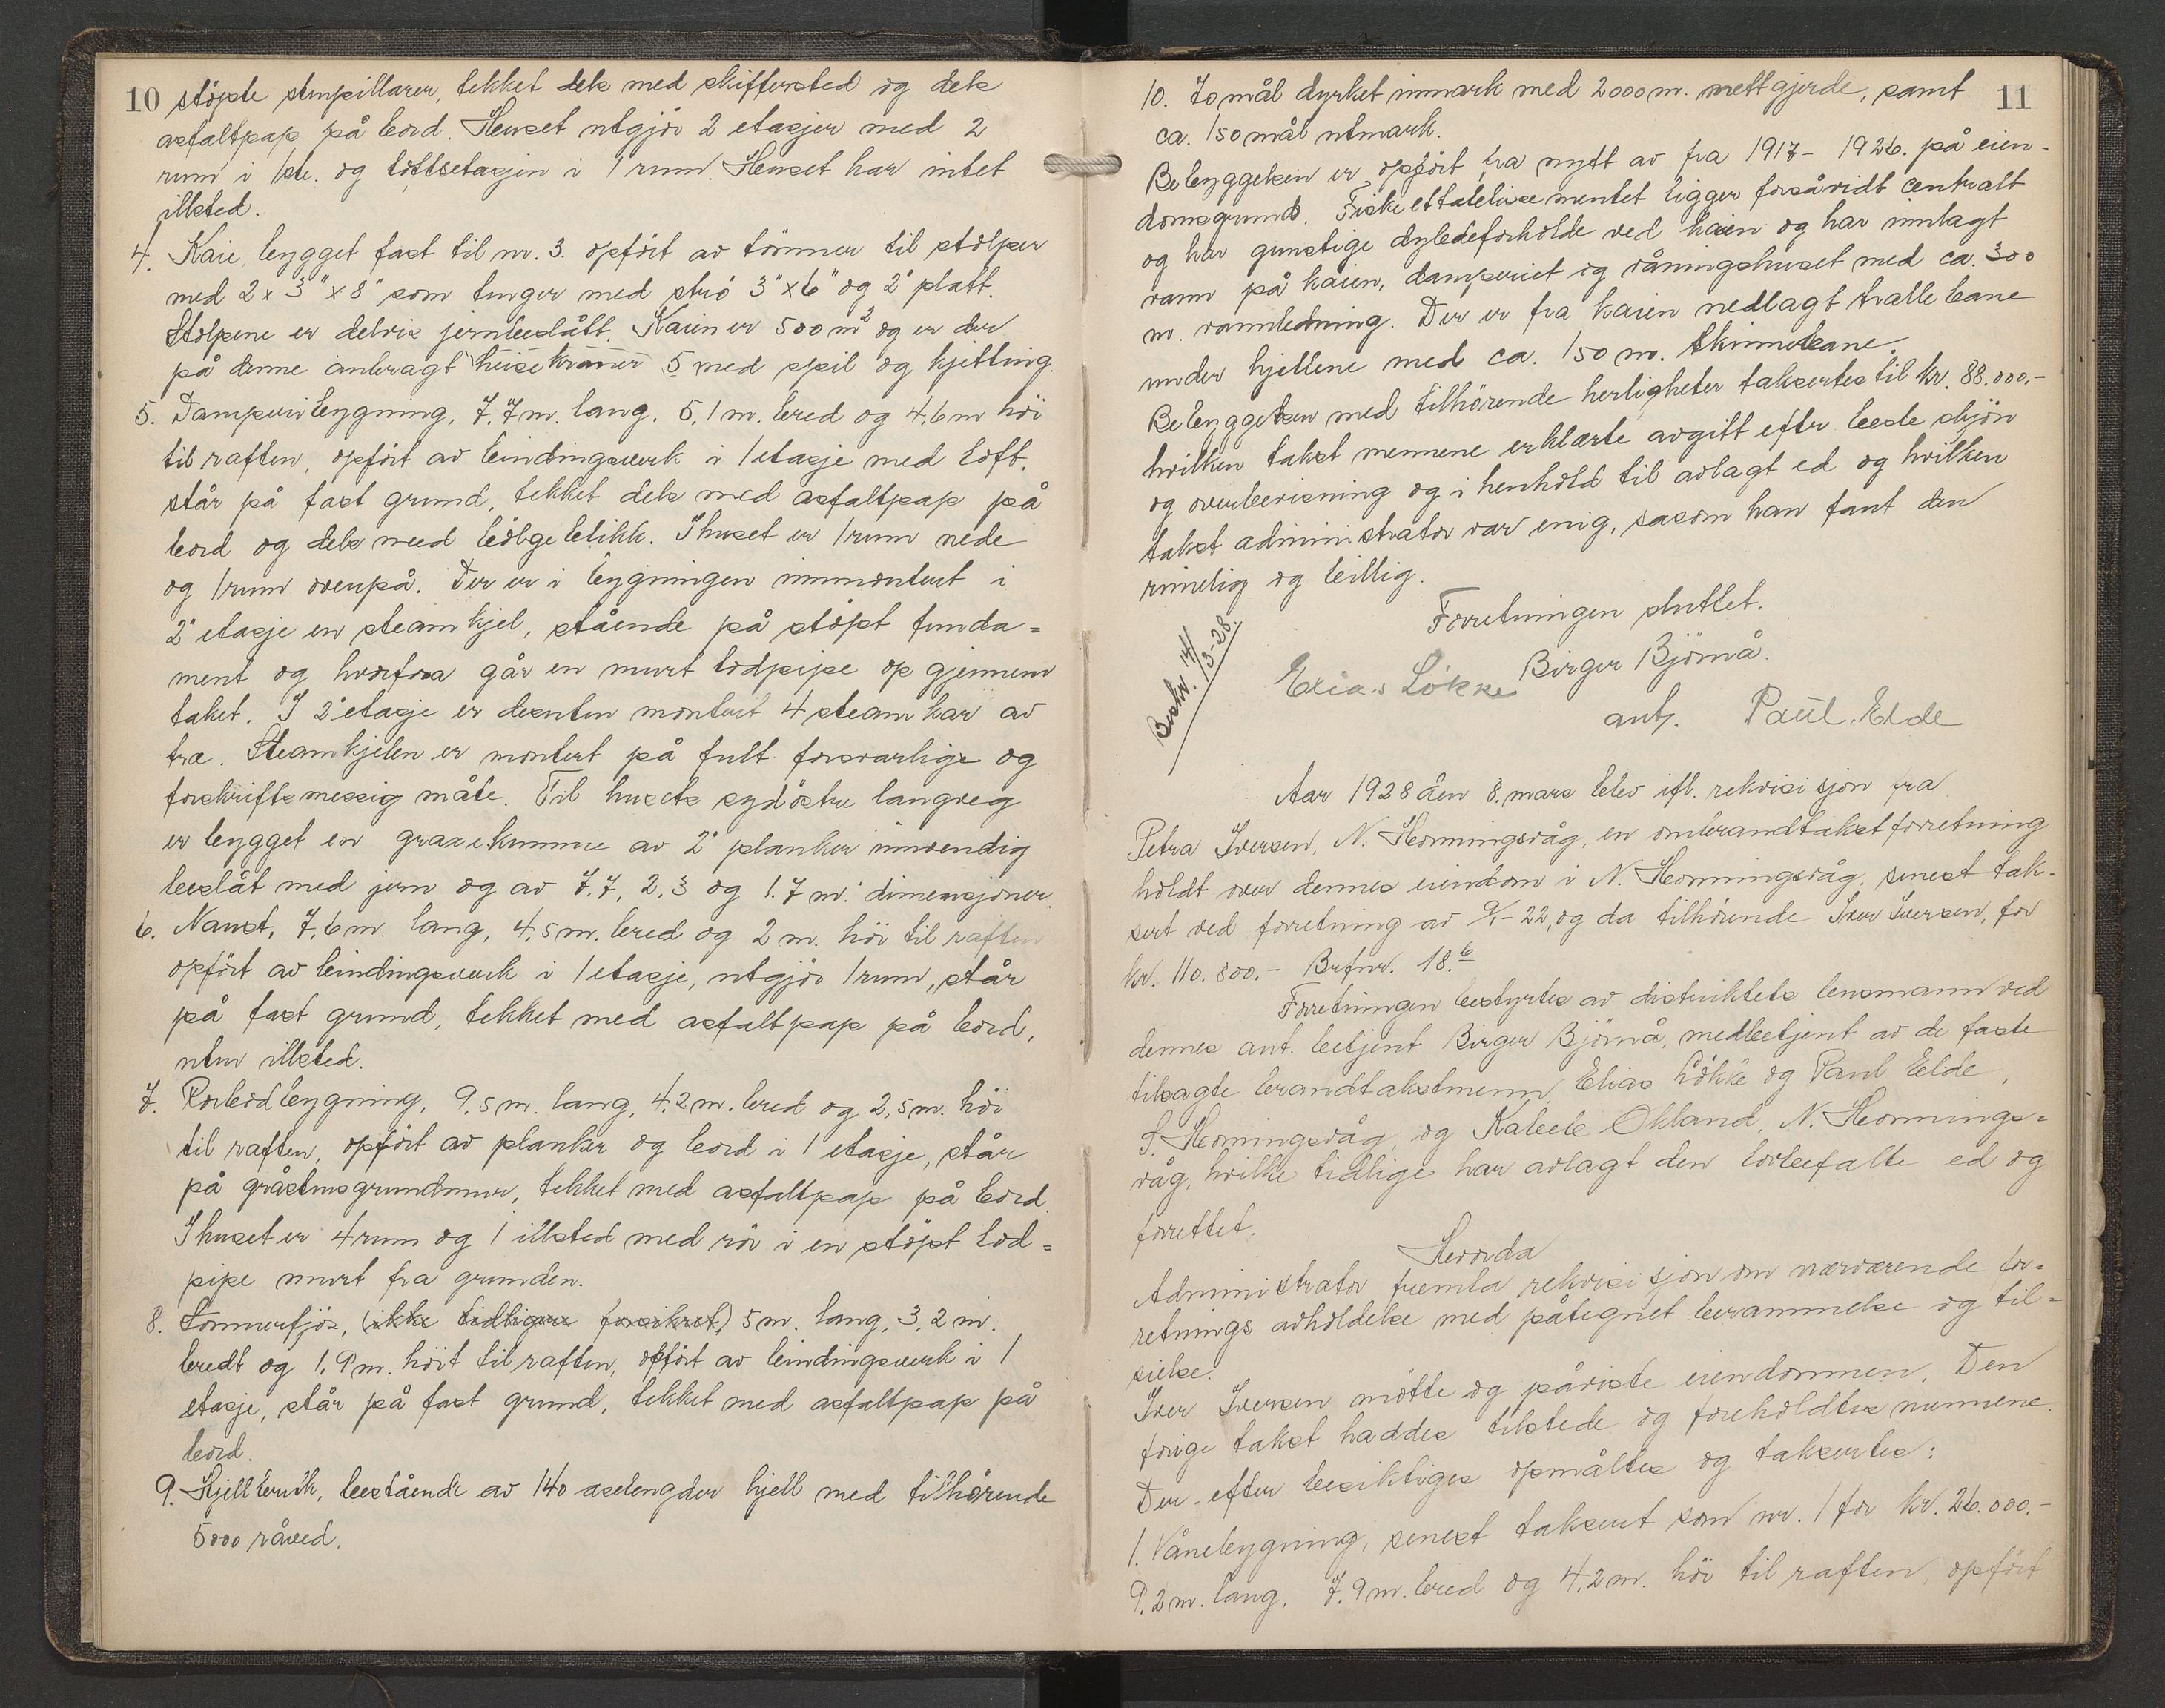 10
støpte stenpillarer, tekket dels med skiffersted og dels
asfaltpap på bord. Huset utgjør 2 etasjer med 2
rum i 1ste. og loftsetasjen i 1 rum. Huset har intet
illsted.
4. Kaie, bygget fast til nr. 3. opført av tømmer til stolper
med 2 x 3" x 8" som tenger med strø 3" x 6" og 2" platt.
Stolpene er delvis jernbeslått. Kaien er 500 m² og er der
på denne anbragt heisekraner 5 med spil og kjetting.
5. Damperibygning, 7.7 m. lang, 5,1 m. bred og 4,6 m høi
til raften, opført av bindingsverk i 1 etasje med loft.
står på fast grund, tekket dels med asfaltpap på
bord og dels med bølgeblikk. I huset er 1 rum nede
og 1 rum ovenpå. Der er i bygningen innmontert i
2' etasje en steamkjel, stående på støpt funda=
ment og hvorfra går en murt lodpipe op gjennem
taket. I 2' etasje er desuten montert 4 steamkar av
træ. Steamkjelen er montert på fult forsvarlige og
forskriftsmessig måte. Til husets sydøstre langveg
er bygget en graxekumme av 2" planker innvendig
beslåt med jern og av 7,7, 2,3 og 1.7 m. dimensjoner.
6. Naust, 7,6 m. lang, 4,5 m. bred og 2 m. høi til raften
opført av bindingsverk i 1 etasje, utgjør 1 rum, står
på fast grund, tekket med asfaltpap på bord,
uten illsted.
7. Rorbodbygning, 9,5 m. lang, 4.2 m. bred og 2,5 m. høi
til raften, opført av planker og bord i 1 etasje, står
på gråstensgrundmur, tekket med asfaltpap på bord.
I huset er 4 rum og 1 illsted med rør i en støpt lod=
pipe murt fra grunden.
8. Sommerfjøs, (ikke tidligere forsikret) 5 m. lang, 3,2 m.
bredt og 1,9 m. høit til raften, opført av bindingsverk i 1
etasje, står på fast grund, tekket med asfaltpap på
bord.
9. Hjellbruk, bestående av 140 aselengder hjell med tilhørende
5000 råved.
11
10. 70 mål dyrket innmark med 2000 m. nettgjerde, samt
ca. 150 mål utmark.
Bebyggelsen er opført fra nytt av fra 1917 - 1926. på eien-
domsgrund. Fiskeetablisementet ligger forsåvidt centralt
og har gunstige dybdeforholde ved kaien og har innlagt
vann på kaien, damperiet og våningshuset med ca. 300
m. vannledning. Der er fra kaien nedlagt trallebane
under hjellene med ca. 150 m. skinnebane.
Bebyggelsen med tilhørende herligheter taksertes til kr. 88.000.-
hvilken takst mennene erklærte avgitt efter beste skjøn
og overbevisning og i henhold til avlagt ed og hvilken
takst administrator var enig, såsom han fant den
rimelig og billig.
Forretningen sluttet.
Beskr. 14/3-28.
Birger Bjørnå.
Elias Løkke
ant. Paul Elde
Aar 1928 den 8. mars blev ifl. rekvisisjon fra
Petra Iversen, N. Honningsvåg, en ombrandtakstforretning
holdt over dennes eiendom i N. Honningsvåg, senest tak-
sert ved forretning av 9/1-22, og da tilhørende Iver Iversen, for
kr. 110.800.- Brfnr. 18.6
Forretningen bestyrtes av distriktets lensmann ved
dennes ant. betjent Birger Bjørnå, medbetjent av de faste
tilsagte brandtakstmenn, Elias Løkke og Paul Elde,
S. Honningsvåg, og Kaleb Okland, N. Honnings=
våg, hvilke tidlige har avlagt den lovbefalte ed og
forrettet.
Hvorda
Administrator fremla rekvisisjon om nærværende for-
retnings avholdelse med påtegnet berammelse og til=
sielse.
Iver Iversen møtte og påviste eiendommen. Den
forige takst haddes tilstede og foreholdtes mennene.
Der efter besiktiges opmåltes og taksertes:
1. Vånebygning, senest taksert som nr. 1 for kr. 26.000.-
9.2 m. lang, 7.9 m. bred og 4,2 m. høi til raften, opført